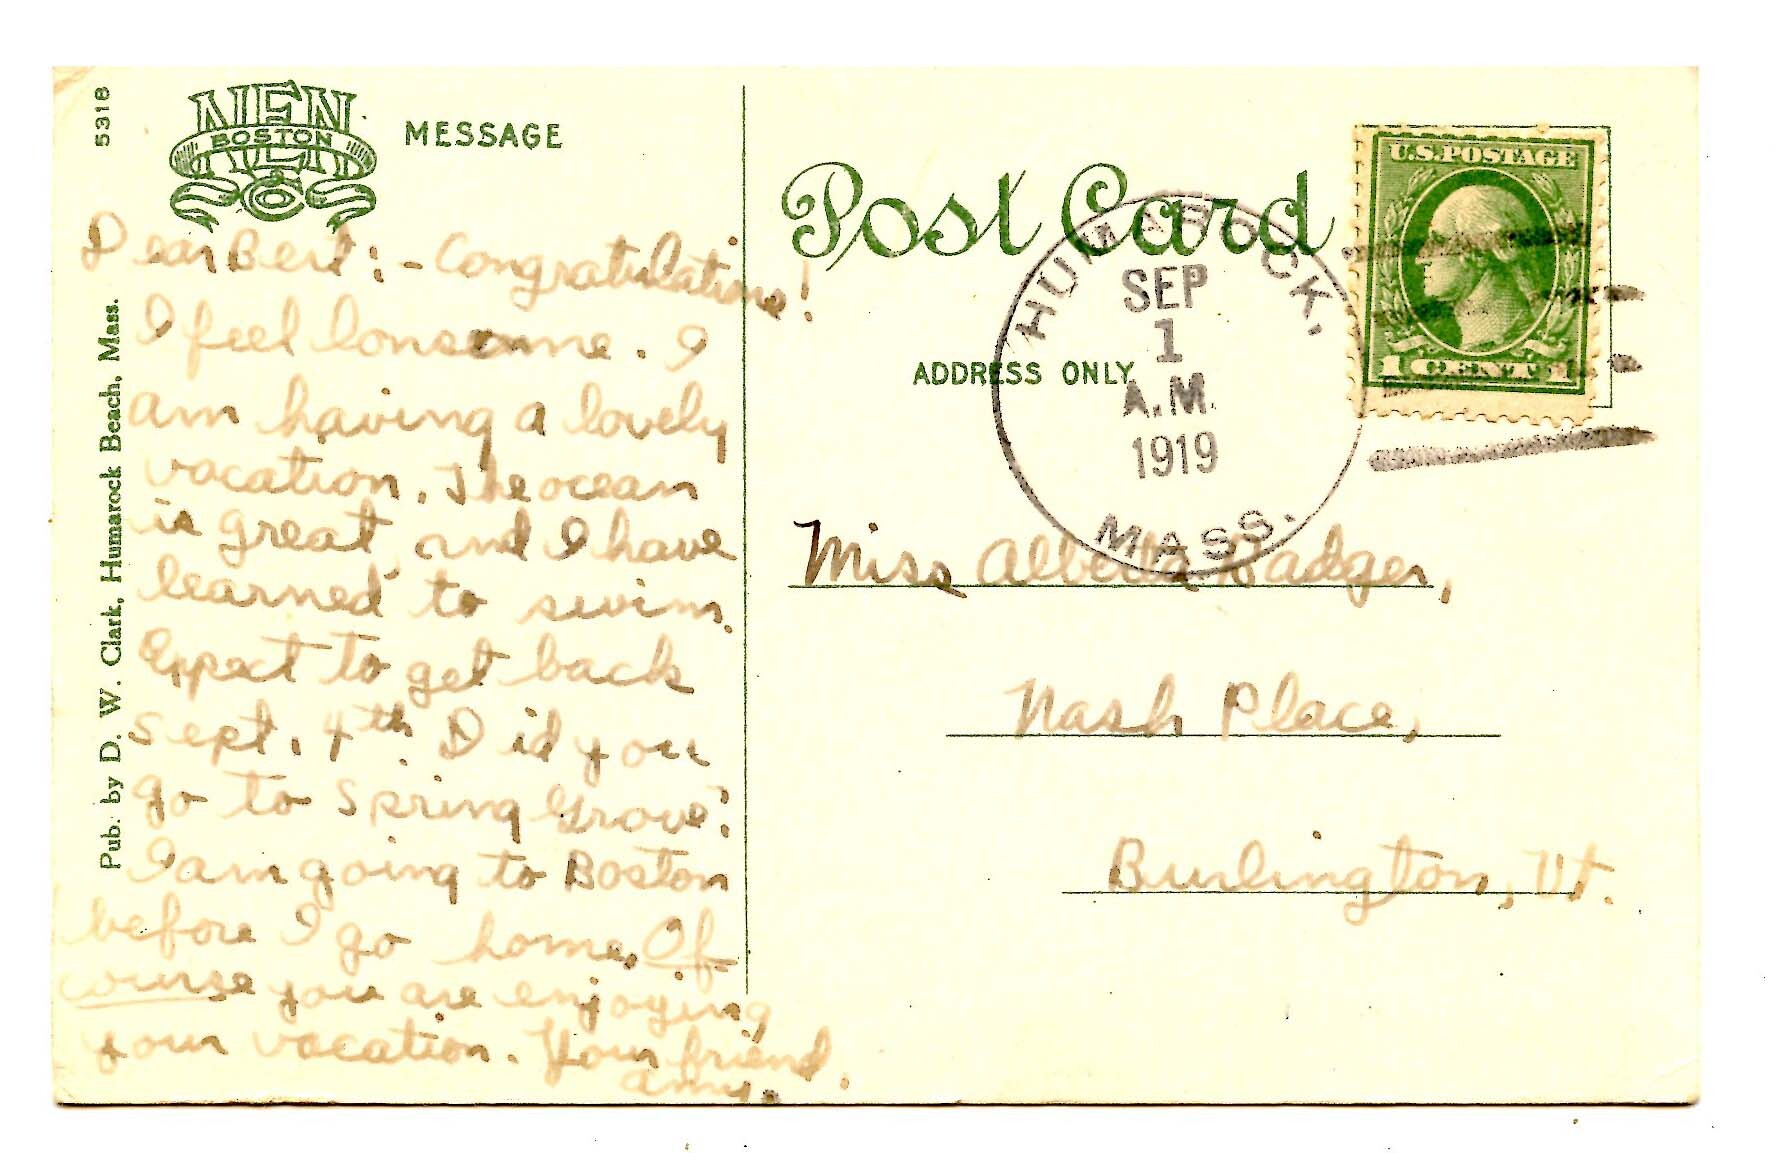 5318
NEN
BOSTON
MESSAGE
Pub. by D. W. Clark, Humarock Beach, Mass.
Dear Bert:- Congratulations!
I feel lonsome. I
am having a lovely
vacation. The ocean
is great, and I have
learned to swim.
Expect to get back
Sept. 4th. Did you
go to Spring Grove?
I am going to Boston
before I go home. Of
course you are enjoying
your vacation. Your friend,
Amy.
Post Card
ADDRESS ONLY
HUMAROCK,
SEP
1
A.M.
1919
MASS.
U.S. POSTAGE
1 CENT 1
Miss Alberta Badger,
Nash Place,
Burlington, Vt.